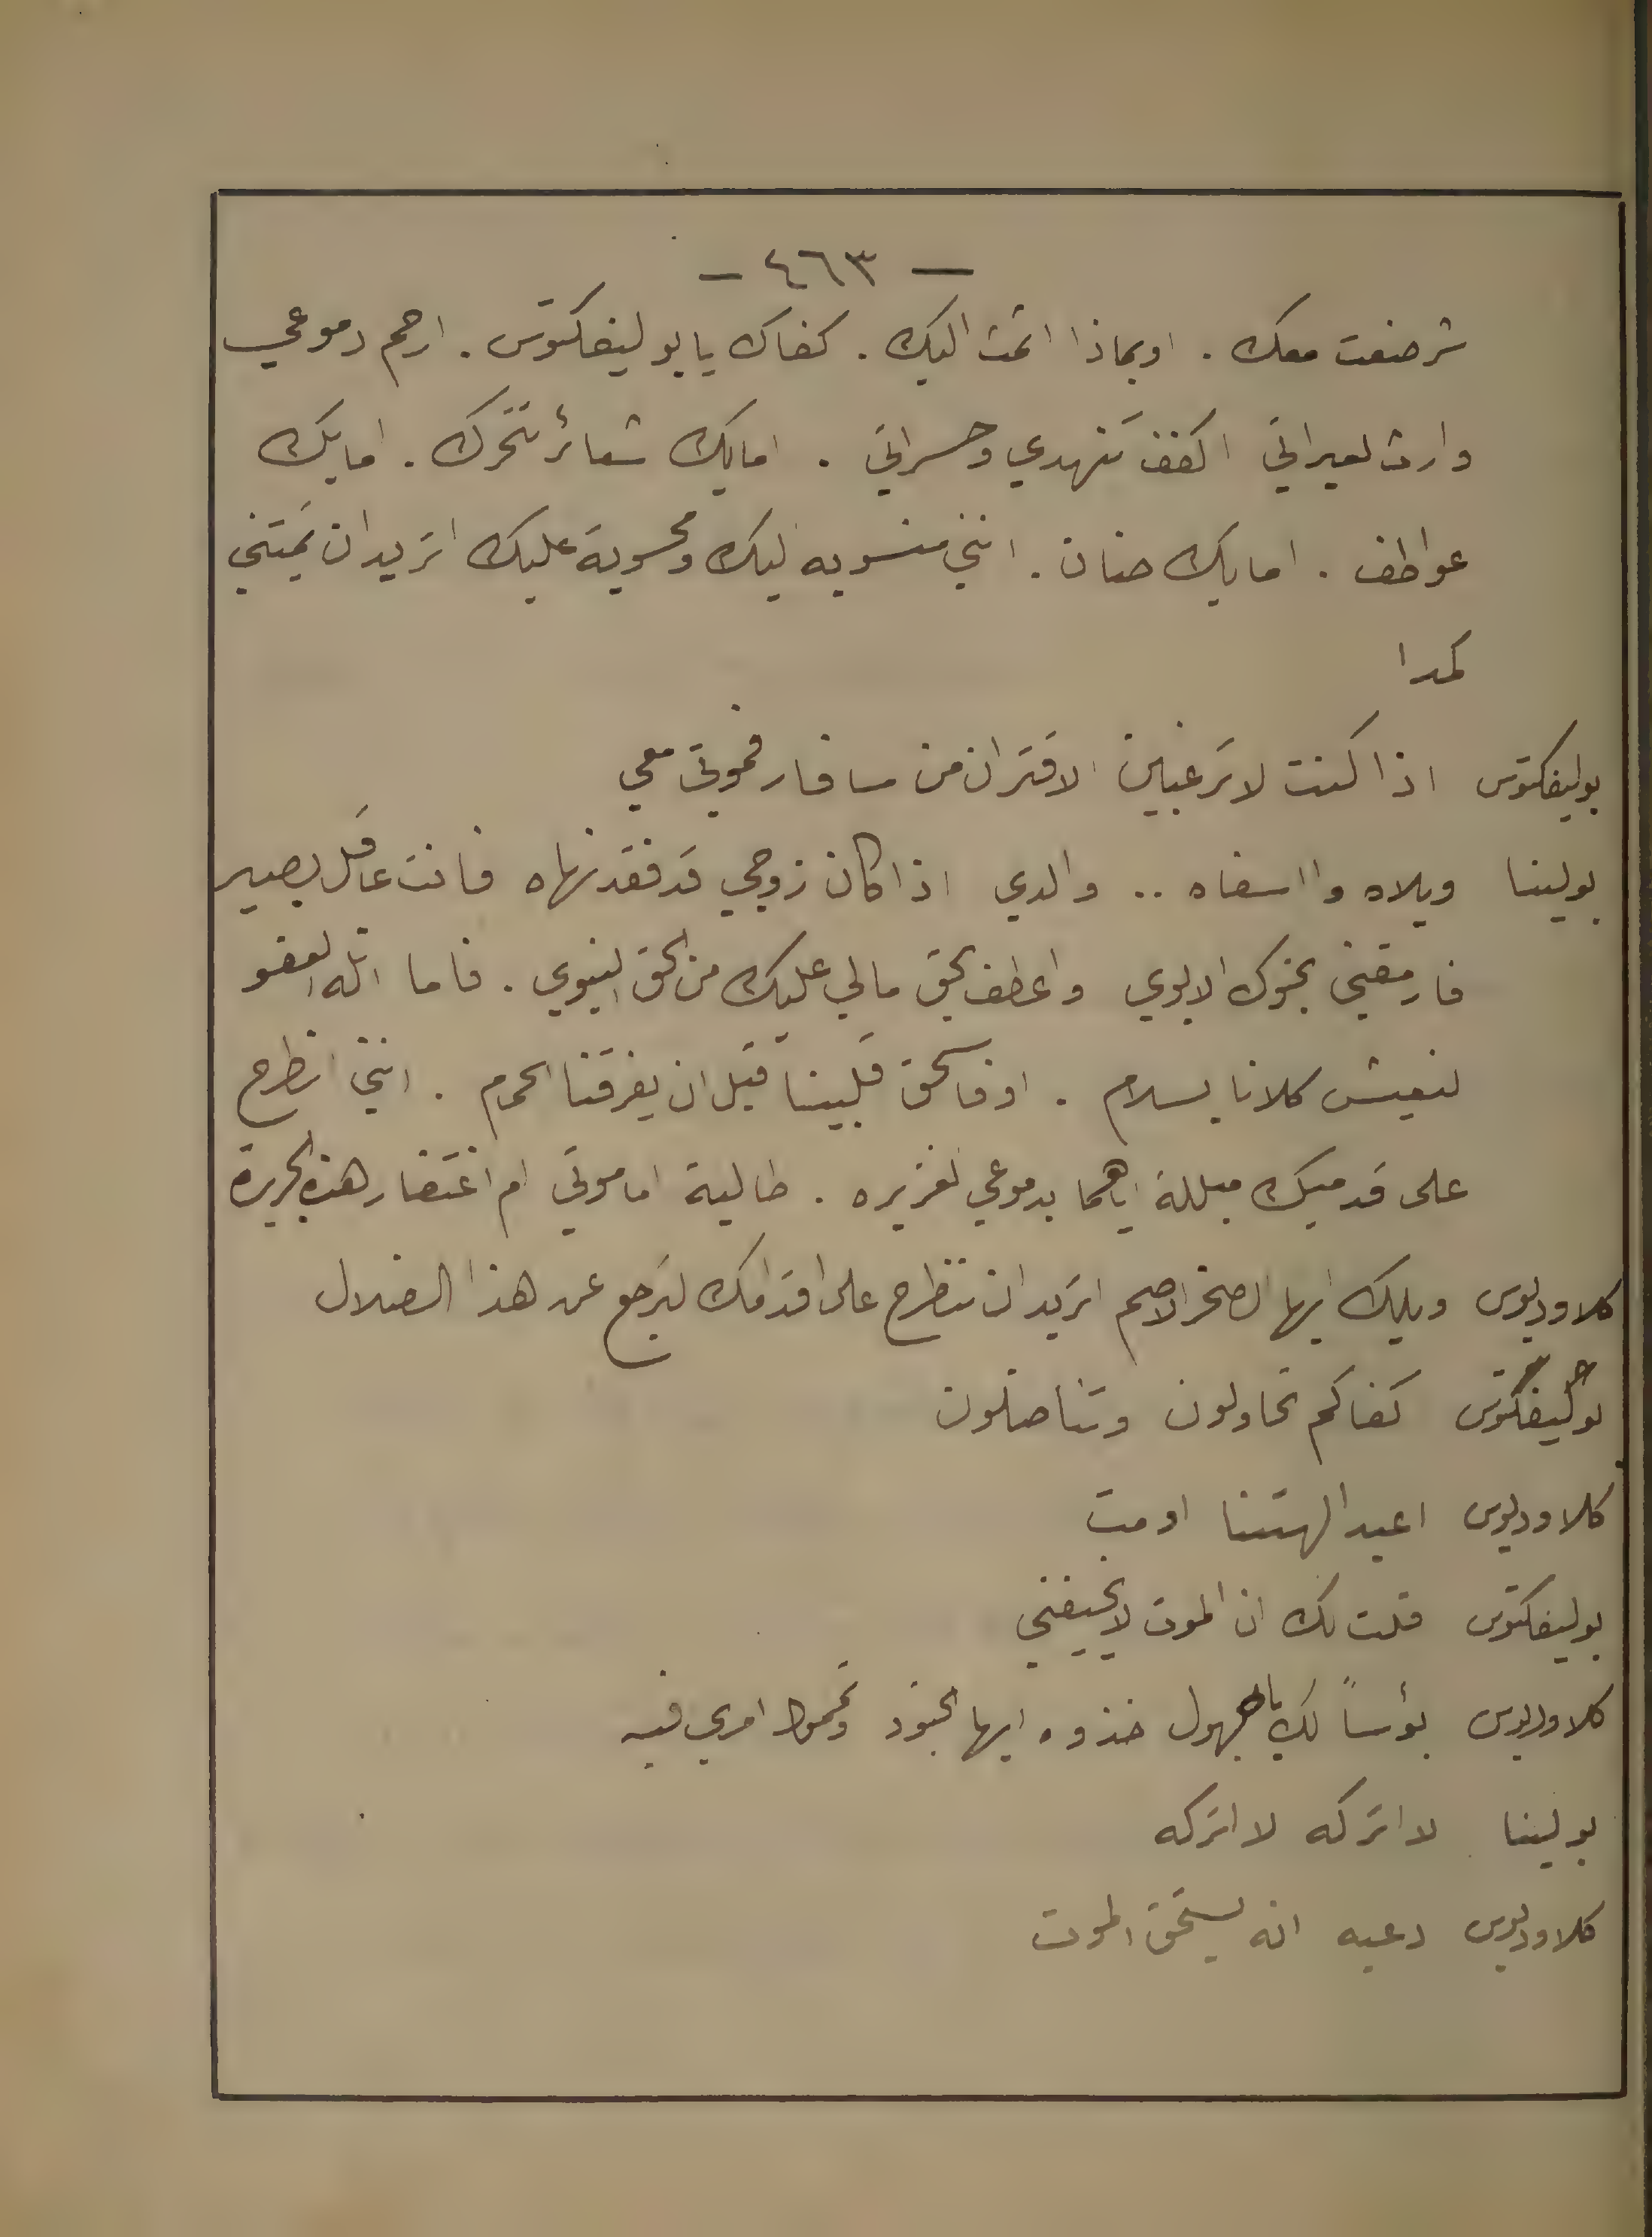 — ٤٦٣ —
شر صنعت معك . او بماذا اثمت اليك . كفاك يا بوليفكتوس . ارحم دموعي
وارث لعبراتي اكفف تنهدي وحسراتي . امابك شعائر تتحرك . امابك
عواطف . امابك حنان . انني منسوبه ليك ومحسوبة عليك اتريد ان تميتني
كمدا
بوليفكتوس اذا كنت لا ترغبين الاقتران من سافار فموتي معي
بولينا ويلاه وا اسفاه .. والدي اذا كان زوجي قد فقد نهاه فانت عاقل بصير
فارمقني بحنوك الابوي واعطف بحق مالي عليك من الحق البنوي . فاما انله العفو
لنعيش كلانا بسلام . او فاسحق قلبينا قبل ان يفرقنا الحمام . انني انطرح
على قدميك مبللة اياهما بدموعي لغزيره . طالبة اما موتي ام اغتفار هذه الجريرة
كلاوديوس ويلك ايها الصخر الاصم اتريد ان تنطرح على اقدامك لترجع عن هذا الضلال
بوليفكتوس كفاكم تحاولون وتناضلون
كلاوديوس اعبد الهتنا او مت
بوليفكتوس قلت لك ان الموت لا يخيفني
كلاوديوس بؤساً لك يا جهول خذوه ايها الجنود وتمموا امري فيه
بولينا لا اتركه لا اتركه
كلاوديوس دعيه انه يستحق الموت